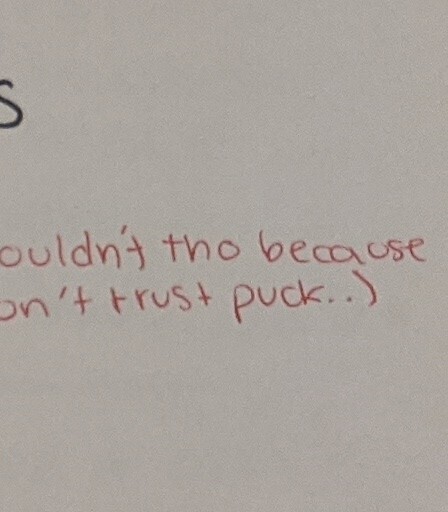 s
ouldn't tho because
on't trust puck..)